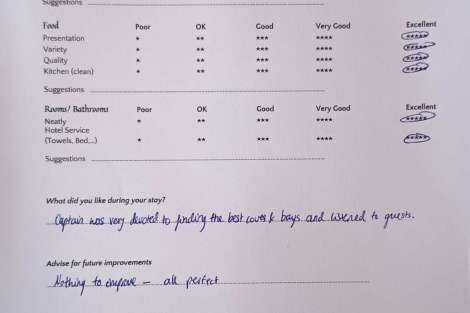 Suggestions
Food Poor OK Good Very Good Excellent
Presentation * ** *** **** *****
Variety * ** *** **** *****
Quality * ** *** **** *****
Kitchen (clean) * ** *** **** *****
Suggestions
Rooms/ Bathrooms Poor OK Good Very Good Excellent
Neatly * ** *** **** *****
Hotel Service
(Towels, Bed...) * ** *** **** *****
Suggestions
What did you like during your stay?
Captain was very devoted to finding the best coves & bays and listened to guests.
Advise for future improvements
Nothing to improve - all perfect